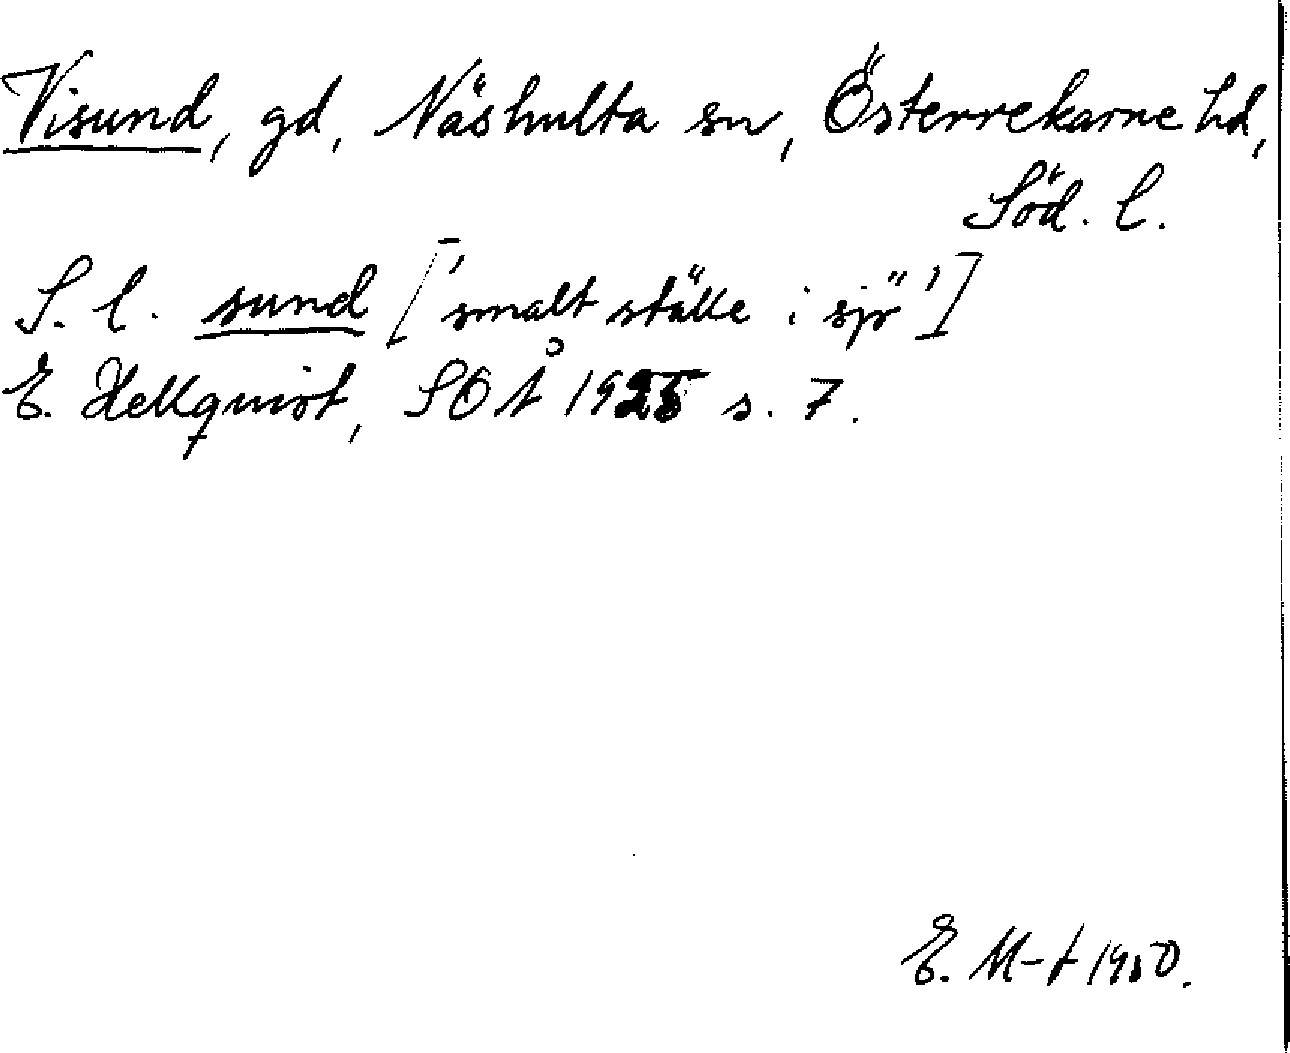 Visund, gd, Näshulta sn, Österrekarne hd,
Söd. l.
S. l. sund ['smalt ställe i sjö']
E. Hellquist, SOÅ 1925 s. 7.
E. M-t 1950.